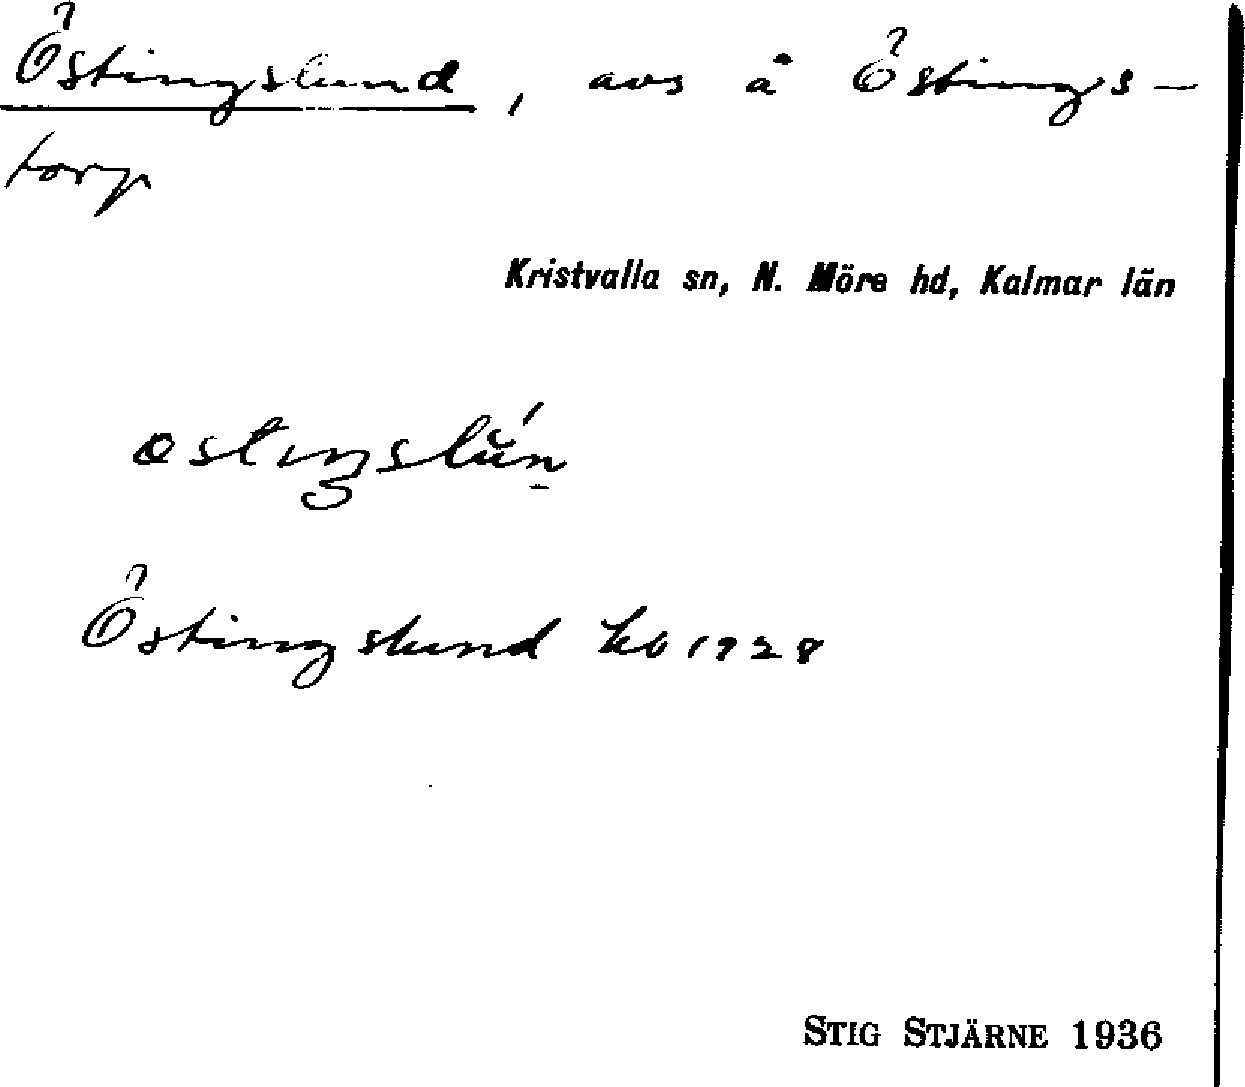 Östingslund, avs å Östings-
torp
Kristvalla sn, N. Möre hd, Kalmar län
Östingslund kb 1928
STIG STJÄRNE 1936